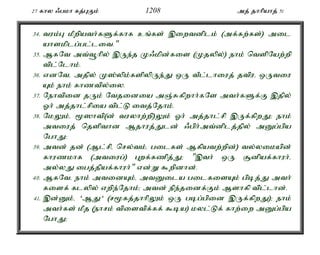 27 கால ஃபமா கத்புகும் 1208 அத் தாரியாத் 51
34. வரம்பு மீறியவர்களுக்காக உங்கள் இறைவனிடம் (அக்கற்கள்) அடையாளமிடப்பட்டவை."
35. ஆகவே அவ்வூரில் இருந்த முஃமின்களை (முதலில்) நாம் வெளியேற்றி விட்டோம்.
36. எனவே, அதில் முஸ்லிம்களிலிருந்து ஒரு வீட்டாரைத் தவிர, ஒருவரையும் நாம் காணவில்லை.
37. நோவினை தரும் வேதனையை அஞ்சுகிறார்களே அவர்களுக்கு இதில் ஓர் அத்தாட்சியை விட்டு வைத்தோம்.
38. மேலும், மூஸாவி(ன் வரலாற்றி)லும் ஓர் அத்தாட்சி இருக்கிறது; நாம் அவரைத் தெளிவான ஆதாரத்துடன் ஃபிர்அவ்னிடத்தில் அனுப்பிய போது;
39. அவன் தன் (ஆட்சி, செல்வம், படைகள் ஆகியவற்றின்) வல்லமையின் காரணமாக (அவரைப்) புறக்கணித்து; "இவர் ஒரு சூனியக்காரர், அல்லது பைத்தியக்காரர்" என்று கூறினான்.
40. ஆகவே, நாம் அவனையும், அவனுடைய படைகளையும் பிடித்து அவர்களைக் கடலில் எறிந்தோம்; அவன் நிந்தனைக்கும் ஆளாகி விட்டான்.
41. இன்னும், 'ஆது' (சமூகத்தாரி)லும் ஒரு படிப்பினை இருக்கிறது); நாம் அவர்கள் மீத (நாசம் விளைவிக்கக் கூடிய) மலட்டுக் காற்றை அனுப்பிய போது;